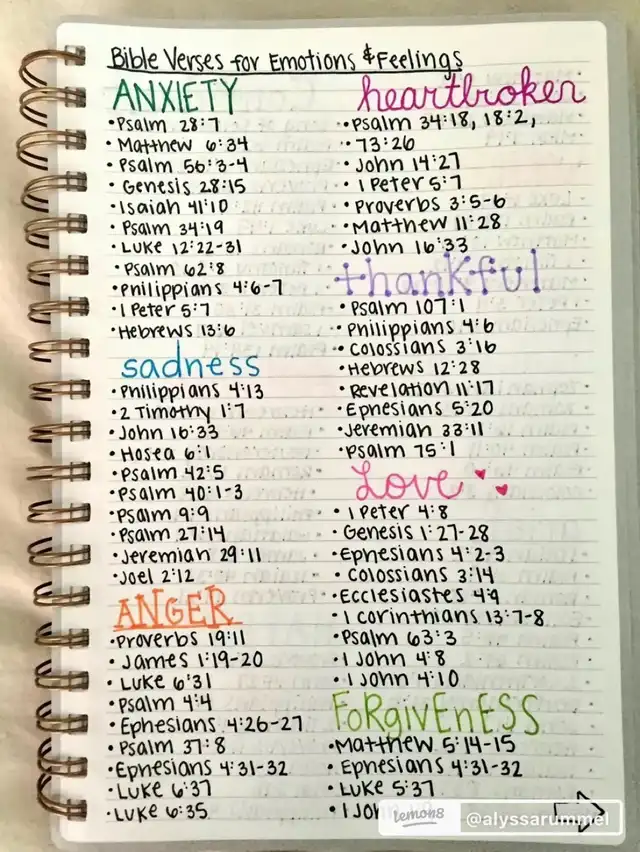 Bible Verses for Emotions & Feelings
ANXIETY
•Psalm 28:7
•Matthew 6:34
•Psalm 56:3-4
•Genesis 28:15
•Isaiah 41:10
•Psalm 34:19
•Luke 12:22-31
•Psalm 62:8
•Philippians 4:6-7
•1 Peter 5:7
•Hebrews 13:6
sadness
•Philippians 4:13
•2 Timothy 1:7
•John 16:33
•Hosea 6:1
•Psalm 42:5
•Psalm 40:1-3
•Psalm 9:9
•Psalm 27:14
•Jeremiah 29:11
•Joel 2:12
ANGER
•Proverbs 19:11
•James 1:19-20
•Luke 6:31
•Psalm 4:4
•Ephesians 4:26-27
•Psalm 37:8
•Ephesians 4:31-32
•Luke 6:37
•Luke 6:35
heartbroken
•Psalm 34:18, 18:2,
•73:26
•John 14:27
•1 Peter 5:7
•Proverbs 3:5-6
•Matthew 11:28
•John 16:33
thankful
•Psalm 107:1
•Philippians 4:6
•Colossians 3:16
•Hebrews 12:28
•Revelation 11:17
•Ephesians 5:20
•Jeremiah 33:11
•Psalm 75:1
Love
•1 Peter 4:8
•Genesis 1:27-28
•Ephesians 4:2-3
•Colossians 3:14
•Ecclesiastes 4:9
•1 Corinthians 13:7-8
•Psalm 63:3
•1 John 4:8
•1 John 4:10
FORGIVENESS
•Matthew 5:14-15
•Ephesians 4:31-32
•Luke 5:37
•1 John
lemon8 @alyssarummel